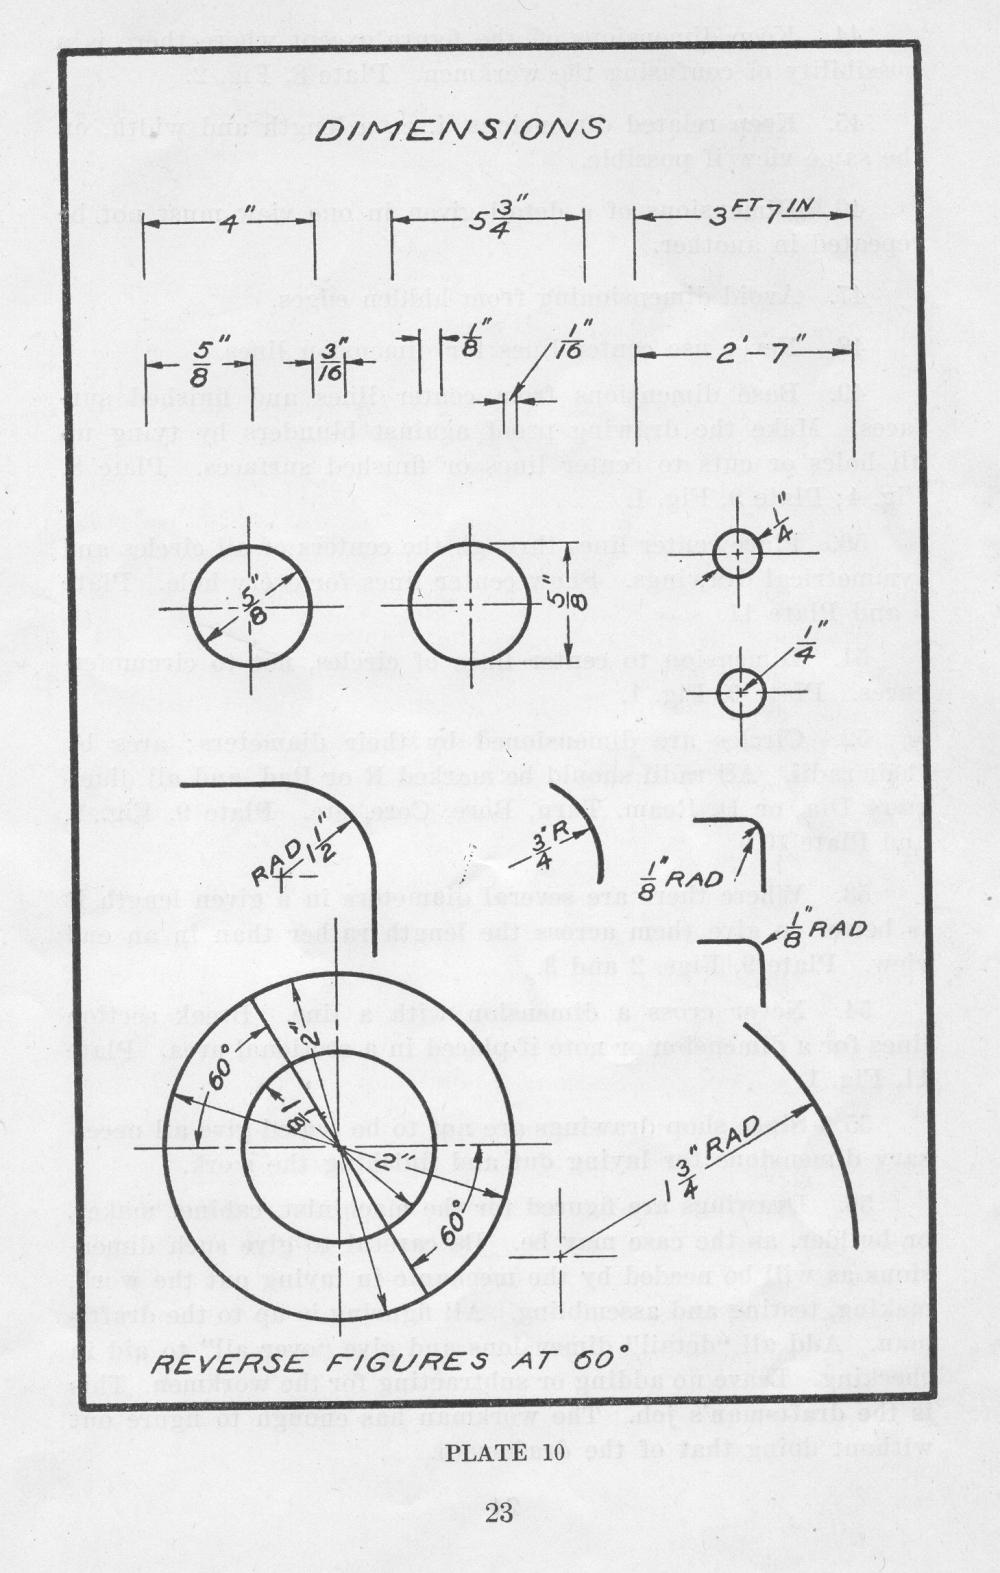 DIMENSIONS
4"
5 3/4"
3 FT 7 IN
5/8"
3/16"
1/8"
1/16"
2'-7"
5/8"
5/8"
1/4"
1/4"
RAD 1 1/2"
3/4" R
1/8" RAD
1/8" RAD
60°
2"
1 1/8
2"
60°
1 3/4" RAD
REVERSE FIGURES AT 60°
PLATE 10
23